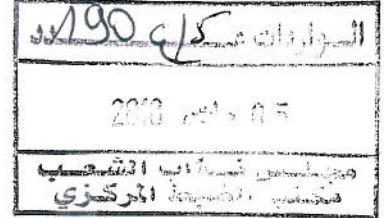 الواردات مكـ/ع 190 عدد
05 مارس 2018
مجلس نواب الشعب
مكتب الضبط المركزي